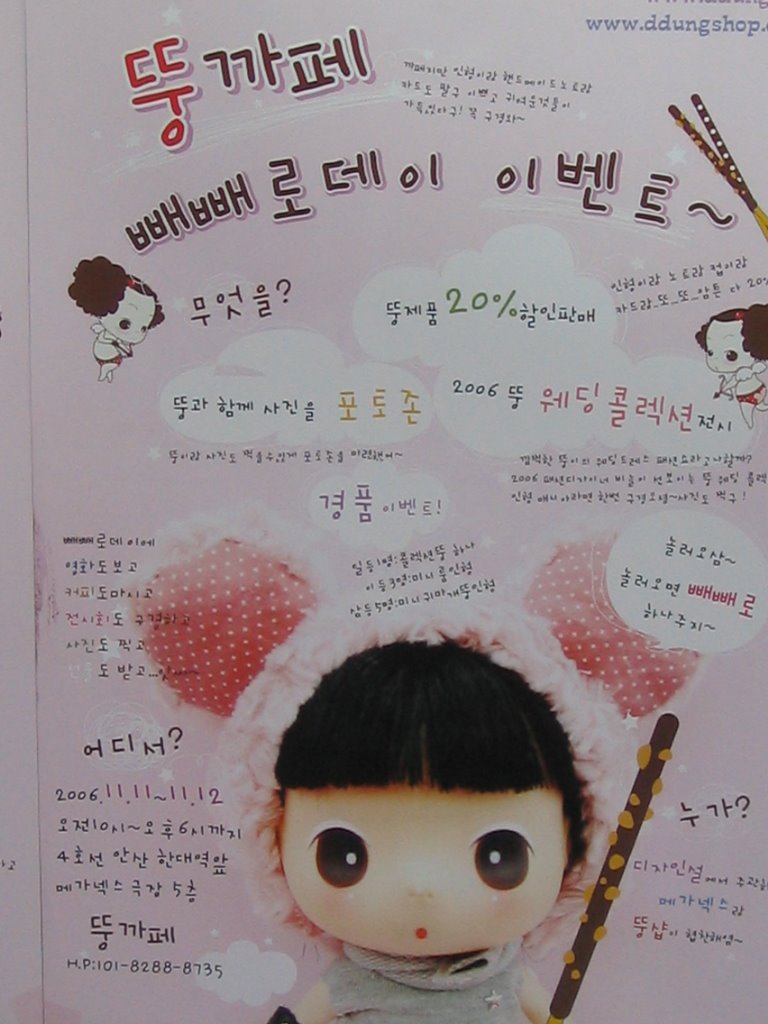 www.ddungshop.
뚱까페
까페지만 인형이랑 핸드메이드노트랑
카드도 팔구 이쁘고 귀여운것들이
가득있다구! 꼭 구경와~
빼빼로데이 이벤트~
무엇을?
뚱제품 20%할인판매
인형이랑 노트랑 컵이랑
카드랑_또_또_암튼 다 20%
뚱과 함께 사진을 포토존
2006 뚱 웨딩콜렉션전시
뚱이랑 사진도 찍을수있게 포토존을 마련했어~
깜찍한 뚱이의 웨딩드레스 패션쇼라고나할까?
2006 패션디자이너 선보이는 뚱 웨딩 콜렉
인형 매니아라면 한번 구경오셈~사진도 찍구!
경품이벤트!
일등1명:콜렉션뚱 하나
이등3명:미니룸인형
삼등5명:미니귀마개뚱인형
빼빼로데이에
영화도보고
커피도마시고
전시회도 구경하고
사진도 찍고
선물도 받고...
놀러오삼~
놀러오면 빼빼로
하나주지~
어디서?
2006.11.11~11.12
오전10시~오후6시까지
4호선 안산 한대역앞
메가넥스 극장 5층
뚱까페
H.P:101-8288-8735
누가?
디자인설에서 주관하
메가넥스랑
뚱샵이 협찬해염~